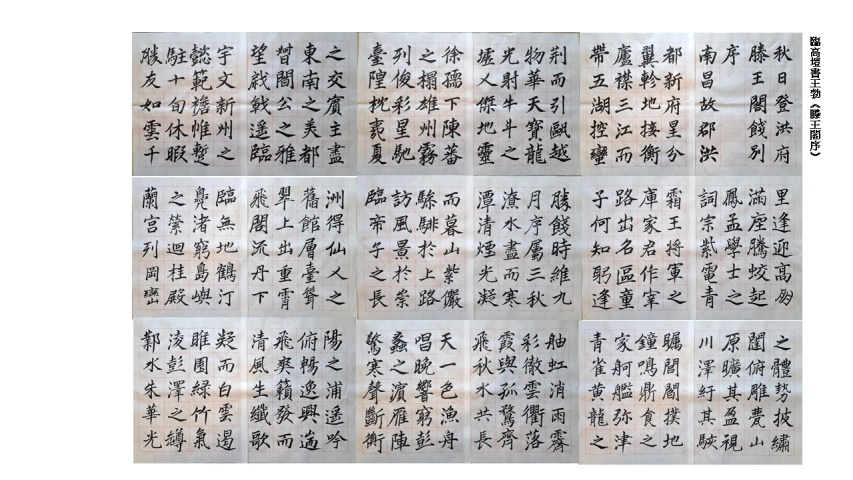 臨高塏書王勃《滕王閣序》
秋日登洪府
滕王閣餞別
序
南昌故郡洪
都新府星分
翼軫地接衡
廬襟三江而
帶五湖控蠻
荊而引甌越
物華天寶龍
光射牛斗之
墟人傑地靈
徐孺下陳蕃
之榻雄州霧
列俊彩星馳
臺隍枕夷夏
之交賓主盡
東南之美都
督閻公之雅
望棨戟遙臨
宇文新州之
懿範襜帷蹔
駐十旬休暇
勝友如雲千
里逢迎高朋
滿座騰蛟起
鳳孟學士之
詞宗紫電青
霜王將軍之
庫家君作宰
路出名區童
子何知躬逢
勝餞時維九
月序屬三秋
潦水盡而寒
潭清煙光凝
而暮山紫儼
驂騑於上路
訪風景於崇
臨帝子之長
洲得仙人之
舊館層臺聳
翠上出重霄
飛閣流丹下
臨無地鶴汀
鳧渚窮島嶼
之縈迴桂殿
蘭宮列岡巒
之體勢披繡
闥俯雕甍山
原曠其盈視
川澤紆其駭
矚閭閻撲地
鐘鳴鼎食之
家舸艦弥津
青雀黃龍之
舳虹消雨霽
彩徹雲衢落
霞與孤鶩齊
飛秋水共長
天一色漁舟
唱晚響窮彭
蠡之濱雁陣
驚寒聲斷衡
陽之浦遙吟
俯暢逸興遄
飛爽籟發而
清風生纖歌
凝而白雲遏
睢園綠竹氣
淩彭澤之罇
鄴水朱華光